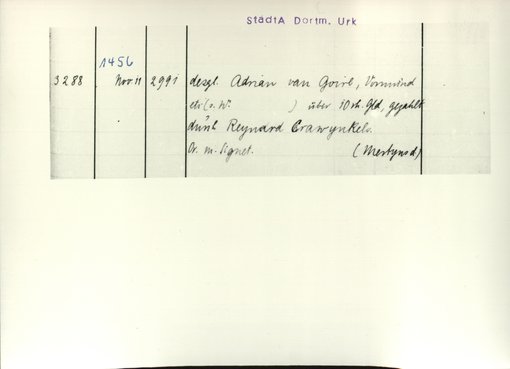 StadtA Dortm. Urk
1456
3288 Nov 11 2991 desgl. Adrian van Goirl, Vormünd
etc (s. W. ) über 10 rh. Gld, gezahlt
durch Reynard Crawynkels.
Or. m. Signet. (Mertynsd)